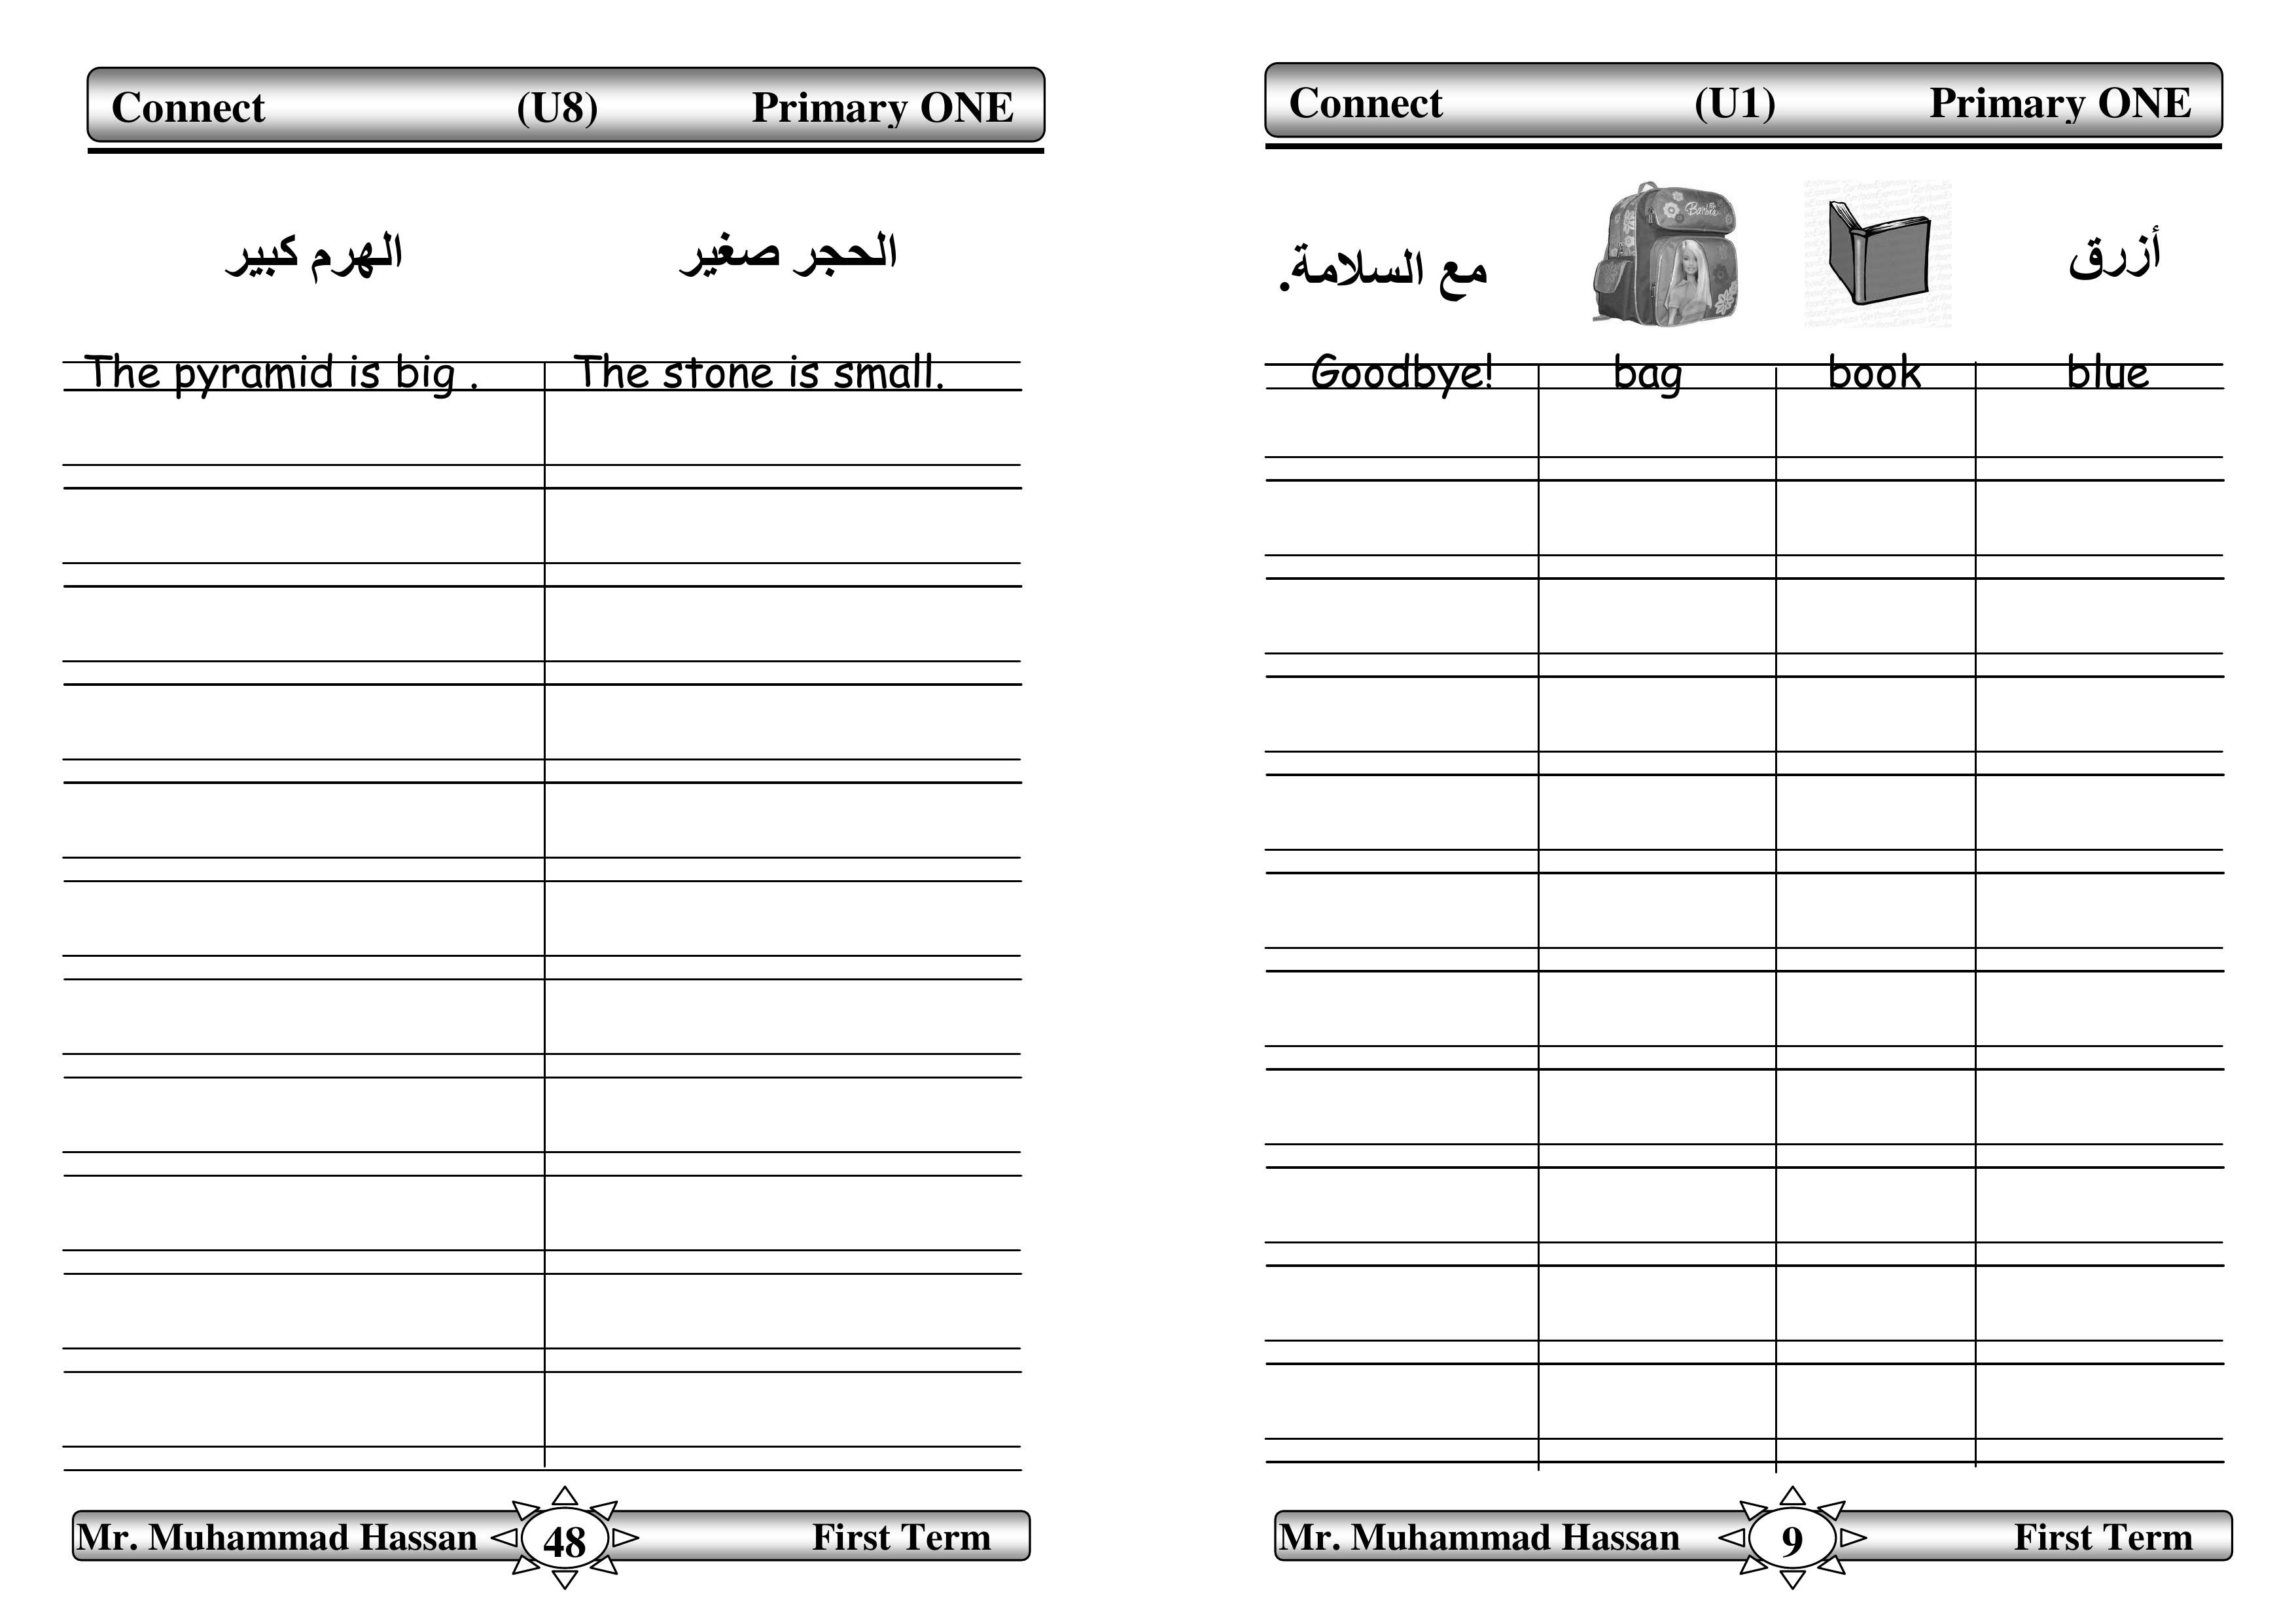 Connect (U8) Primary ONE
الهرم كبير الحجر صغير
The pyramid is big . The stone is small.
Mr. Muhammad Hassan 48 First Term
Connect (U1) Primary ONE
مع السلامة. Barbie أزرق
Goodbye! bag book blue
Mr. Muhammad Hassan 9 First Term